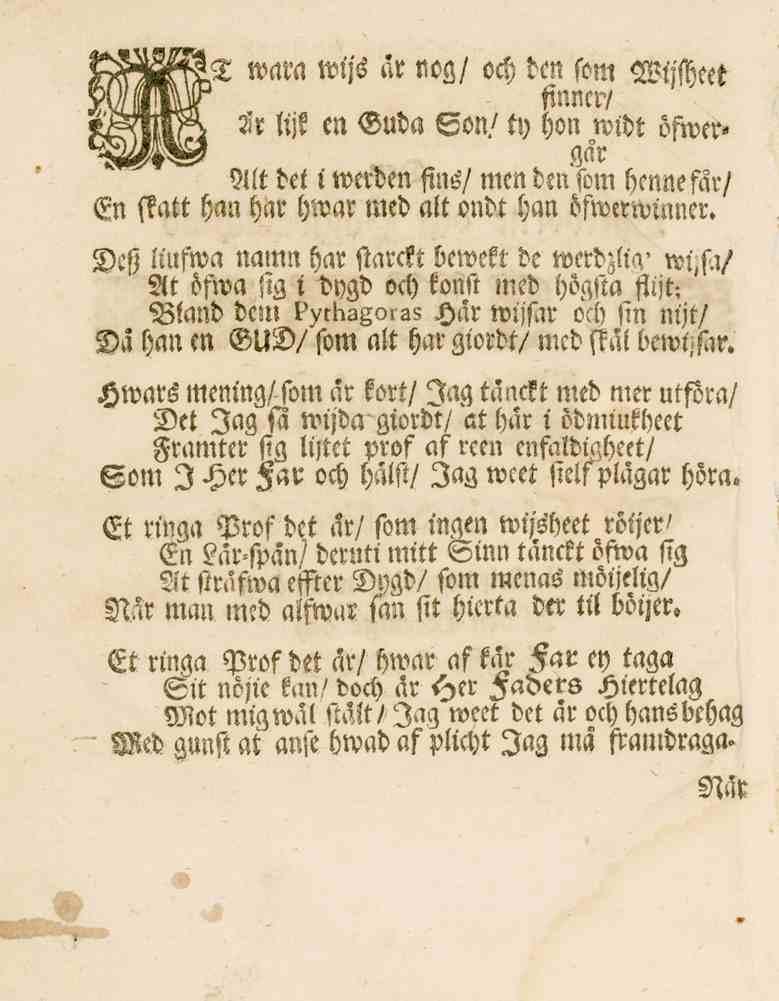 AT wara wijs är nog/ och den som Wijsheet
finner/
Är lijk en Guda Son/ ty hon widt öfwer-
går
Alt det i werden fins/ men den som henne får/
En skatt han har hwar med alt ondt han öfwerwinner.
Deß liufwa namn har starckt bewekt de werdzlig' wijsa/
At öfwa sig i dygd och konst med högsta flijt;
Bland dem Pythagoras Här wijsar och sin nijt/
Då han en GUD/ som alt har giordt/ med skäl bewijsar.
Hwars mening/ som är kort/ Jag tänckt med mer utföra/
Det Jag så wijda giordt/ at här i ödmiukheet
Framter sig lijtet prof af reen enfaldigheet/
Som J Her Far och hälst/ Jag weet sielf plägar höra.
Et ringa Prof det är/ som ingen wijsheet röijer/
En Lär-spån/ deruti mitt Sinn tänckt öfwa sig
At sträfwa effter Dygd/ som menas möijelig/
När man med alfwar san sit hierta der til böijer.
Et ringa Prof det är/ hwar af kär Far ey taga
Sit nöjie kan/ doch är Her Faders Hiertelag
Mot mig wäl stält/ Jag weet det är och hans behag
Med gunst at anse hwad af plicht Jag må framdraga.
När